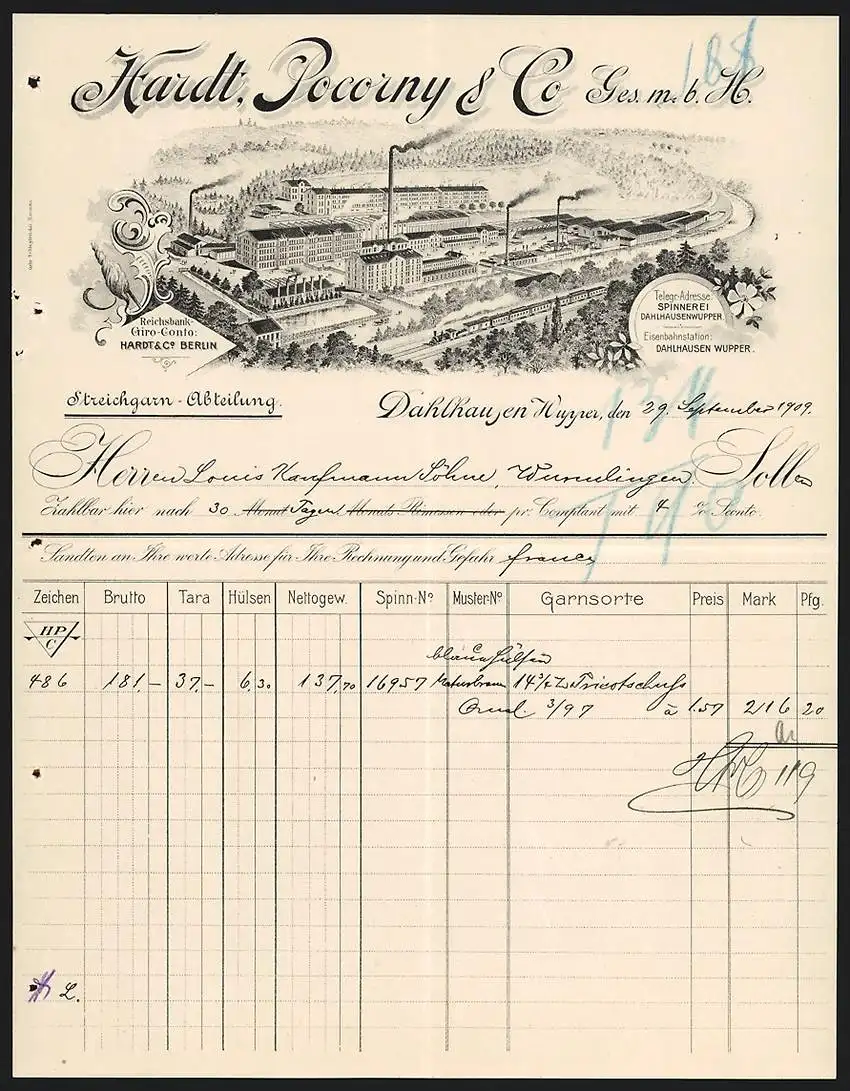 188
Hardt, Pocorny & Co Ges. m. b. H.
Reichsbank-
Giro-Conto:
HARDT & Co BERLIN
Telegr.-Adresse:
SPINNEREI
DAHLHAUSENWUPPER.
Eisenbahnstation:
DAHLHAUSEN WUPPER.
Streichgarn-Abteilung.
Dahlhausen Wupper, den 29. September 1909.
Herren Louis Kaufmann Söhne, Wurmlingen. Sollen
Zahlbar hier nach 30 Monat Tagen Monats Rimessen oder pr. Comptant mit 4 % Sconto.
Sandten an Ihre werte Adresse für Ihre Rechnung und Gefahr franco
Zeichen Brutto Tara Hülsen Nettogew. Spinn-No Muster-No Garnsorte Preis Mark Pfg.
HP
C
blaue Hülsen
486 181,- 37,- 6,30 137,70 16957 Naturbraun 14 3/4 Z Tricotschuss
3/97 à 1.57 216 20
119
L.